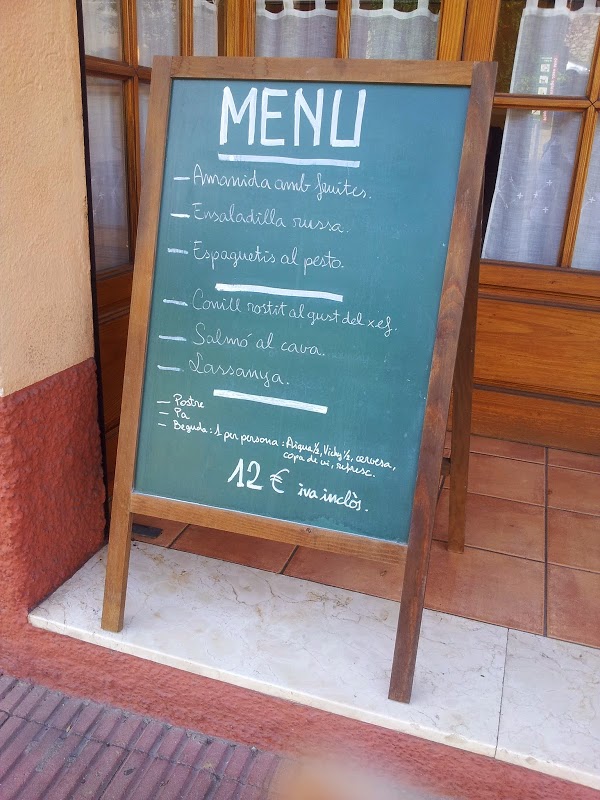 MENU
– Amanida amb fruites.
– Ensaladilla russa.
– Espaguetis al pesto.
– Conill rostit al gust del xef.
– Salmó al cava.
– Lassanya.
– Postre
– Pa
– Beguda: 1 per persona: Aigua ½, Vichy ½, cervesa,
copa de vi, refresc.
12 € iva inclòs.